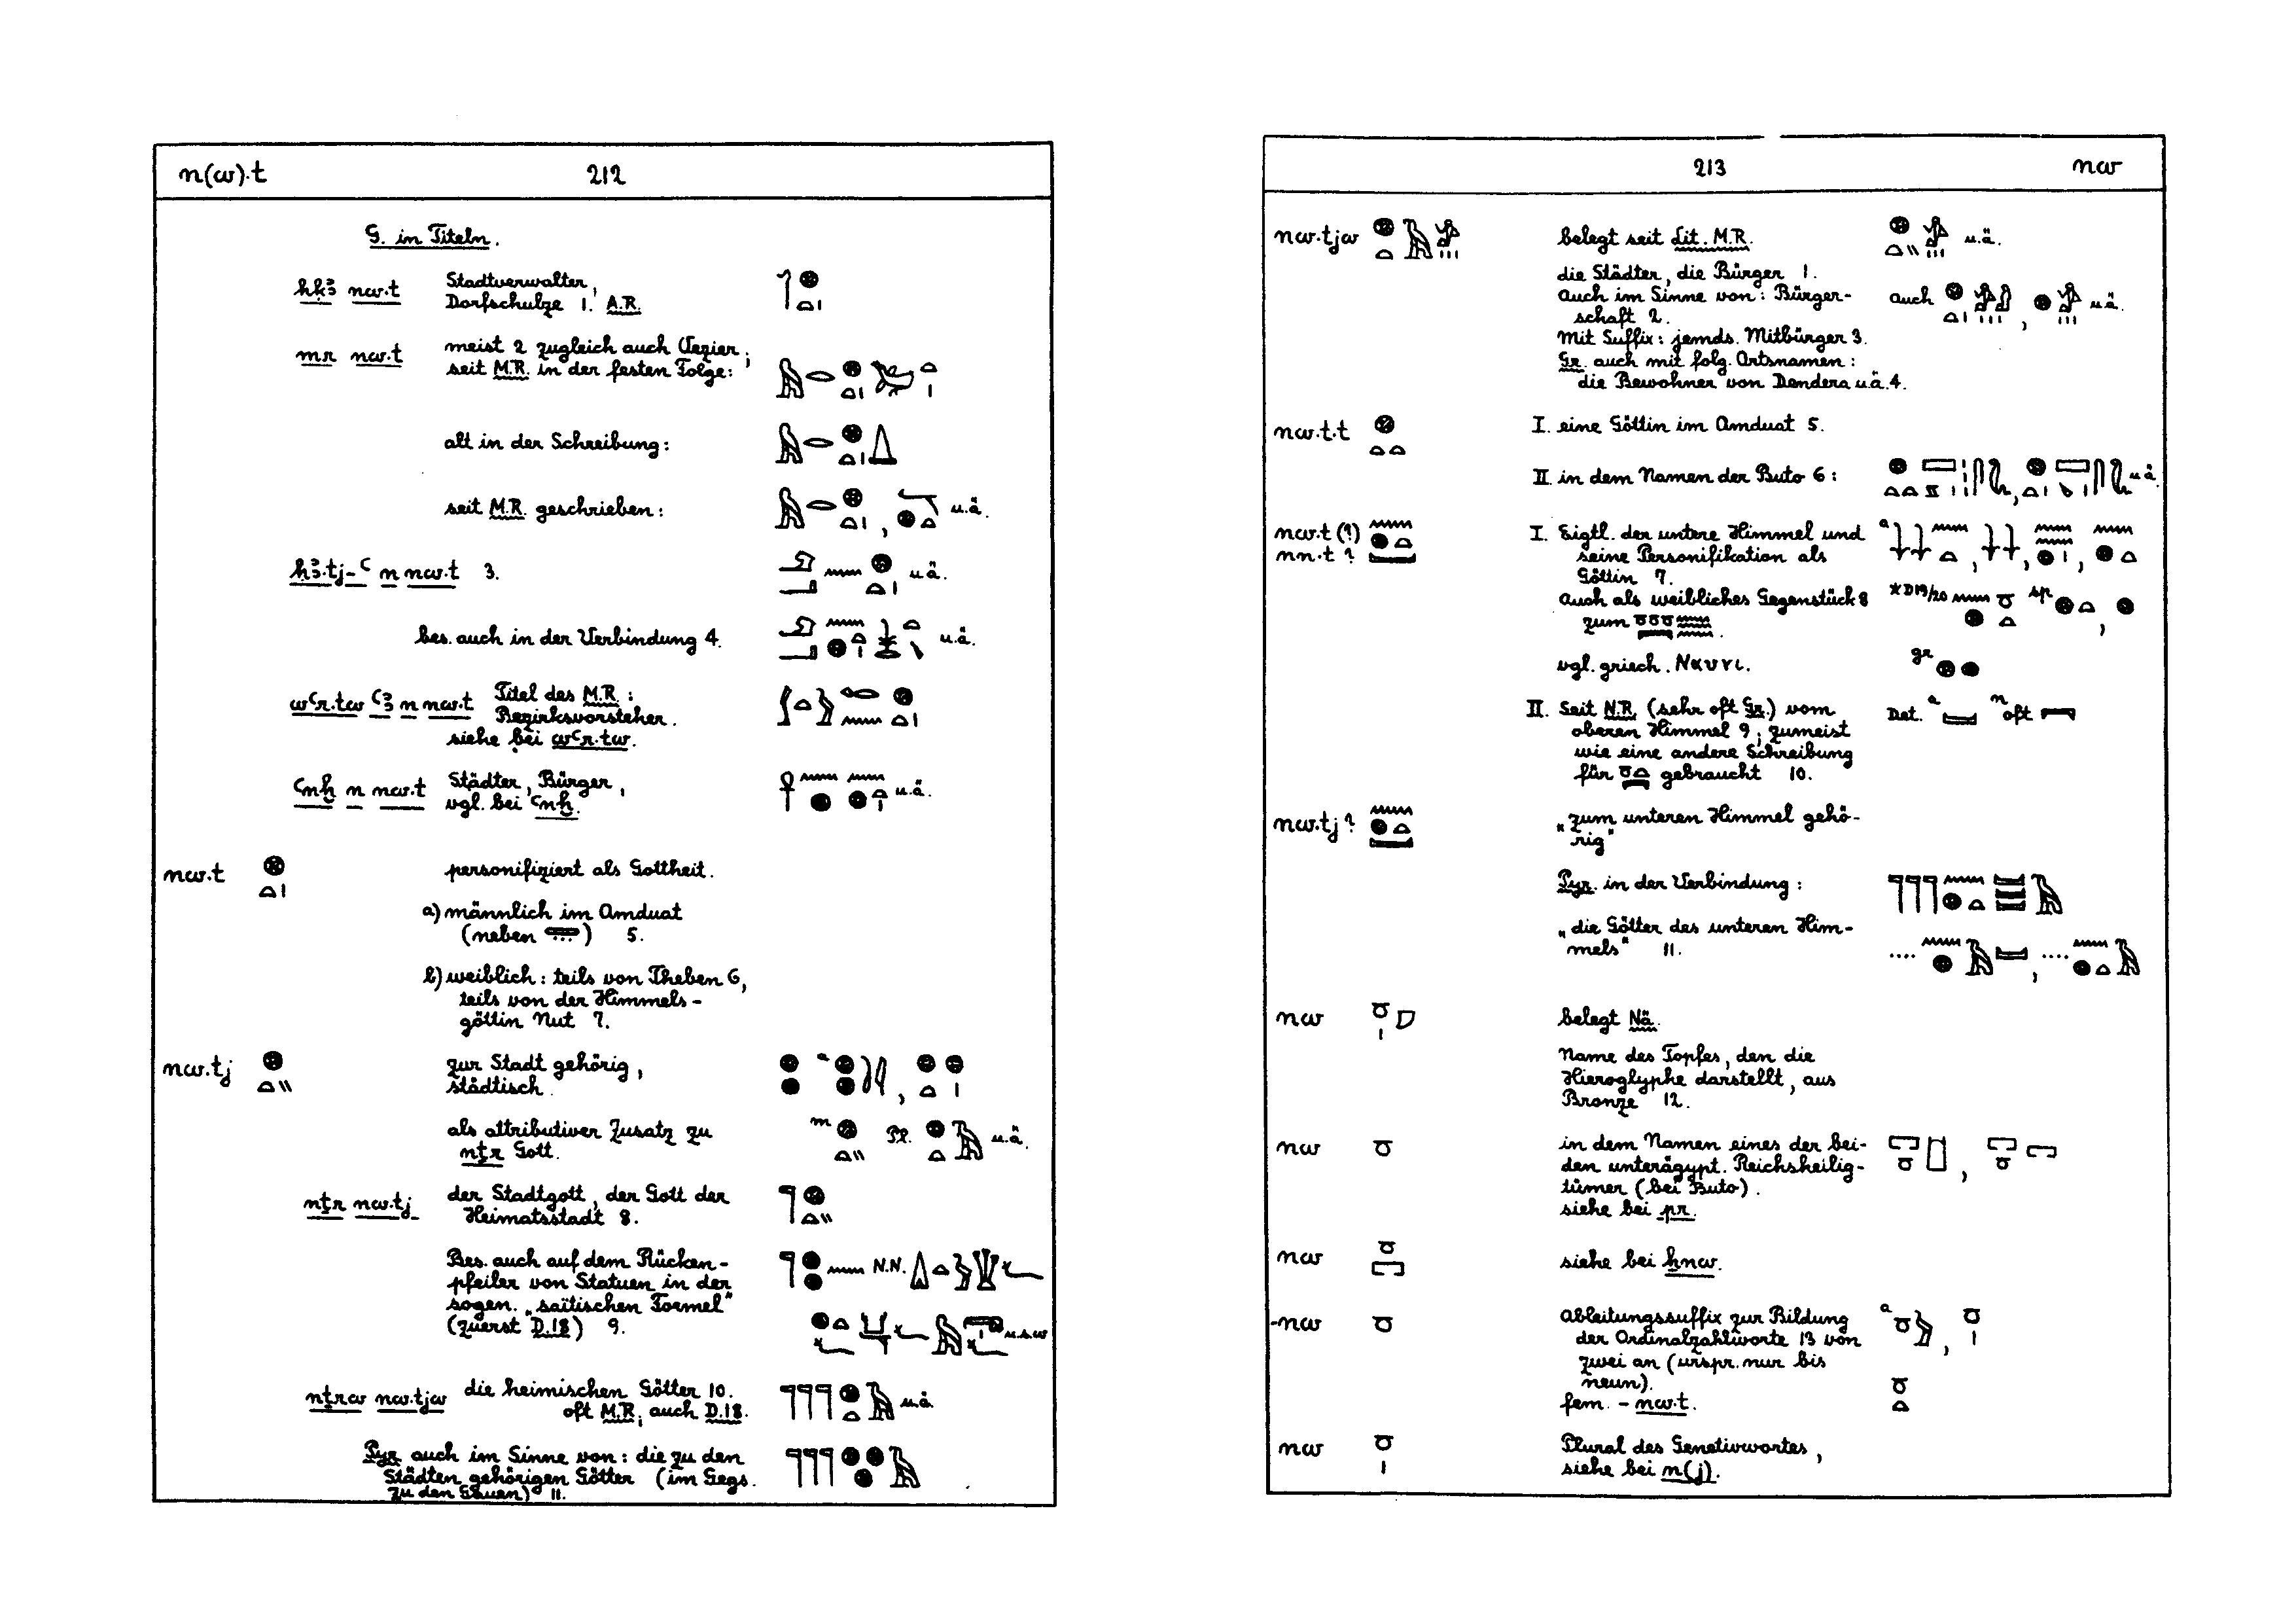 n(w).t 212
G. in Titeln.
ḥḳꜣ nw.t Stadtverwalter,
Dorfschulze 1. A.R.
mr nw.t meist 2 zugleich auch Vezier;
seit M.R. in der festen Folge:
alt in der Schreibung:
seit M.R. geschrieben: , u.ä.
ḥꜣ.tj-ꜥ n nw.t 3. u.ä.
bes. auch in der Verbindung 4. u.ä.
wꜥr.tw ꜥꜣ n nw.t Titel des M.R.:
Bezirksvorsteher.
siehe bei wꜥr.tw.
ꜥnḫ n nw.t Städter, Bürger, u.ä.
vgl. bei ꜥnḫ.
nw.t personifiziert als Gottheit.
a) männlich im Amduat
(neben ) 5.
b) weiblich: teils von Theben 6,
teils von der Himmels-
göttin Nut 7.
nw.tj zur Stadt gehörig, a ,
städtisch.
als attributiver Zusatz zu m Pl. u.ä.
nṯr Gott.
nṯr nw.tj der Stadtgott, der Gott der
Heimatsstadt 8.
Bes. auch auf dem Rücken- N.N.
pfeiler von Statuen in der
sogen. „saïtischen Formel"
(zuerst D.18) 9. u.s.w
nṯrw nw.tjw die heimischen Götter 10. u.ä.
oft M.R., auch D.18.
Pyr. auch im Sinne von: die zu den
Städten gehörigen Götter (im Gegs.
zu den Gauen) 11.
213 nw
nw.tjw belegt seit Lit. M.R. u.ä.
die Städter, die Bürger 1.
auch im Sinne von: Bürger- auch , u.ä.
schaft 2.
Mit Suffix: jemds. Mitbürger 3.
Gr. auch mit folg. Ortsnamen:
die Bewohner von Dendera u.ä. 4.
nw.t.t I. eine Göttin im Amduat 5.
II. in dem Namen der Buto 6: , u.ä.
nw.t (?) I. Eigtl. der untere Himmel und a , , ,
nn.t ? seine Personifikation als
Göttin 7.
Auch als weibliches Gegenstück 8 *D19/20 sp ,
zum .
vgl. griech. Ναυνι. gr
II. Seit N.R. (sehr oft Gr.) vom Det. a n oft
oberen Himmel 9; zumeist
wie eine andere Schreibung
für gebraucht 10.
nw.tj ? „zum unteren Himmel gehö-
rig"
Pyr. in der Verbindung:
„die Götter des unteren Him-
mels" 11. .... , ....
nw belegt Nä.
Name des Topfes, den die
Hieroglyphe darstellt, aus
Bronze 12.
nw in dem Namen eines der bei- ,
den unterägypt. Reichsheilig-
tümer (bei Buto).
siehe bei pr.
nw siehe bei ẖnw.
-nw Ableitungssuffix zur Bildung a ,
der Ordinalzahlworte 13 von
zwei an (urspr. nur bis
neun).
fem. - nw.t.
nw Plural des Genetivwortes,
siehe bei n(j).